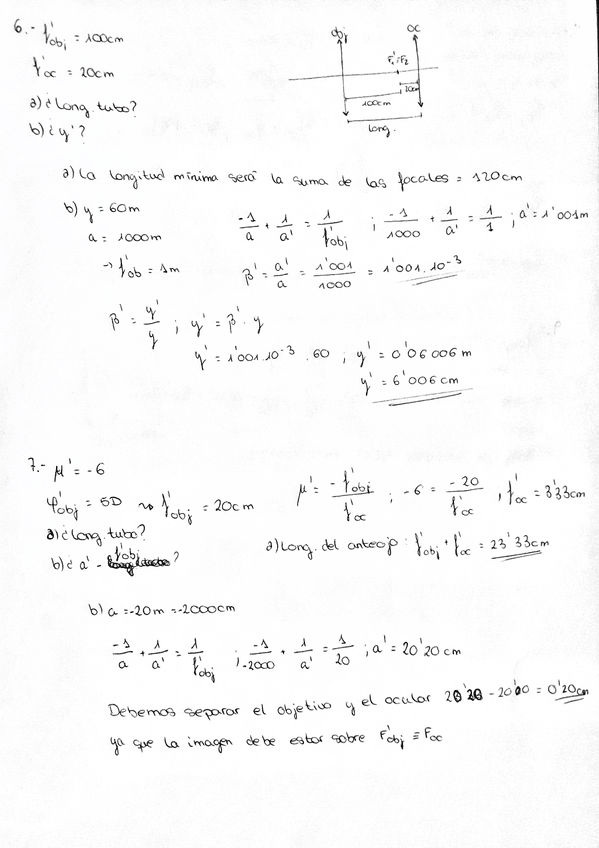 6.- f'obj = 100cm
f'oc = 20cm
a) ¿Long. tubo?
b) ¿y'?
obj
oc
F'1 = F2
20cm
100cm
long.
a) La longitud mínima será la suma de las focales = 120cm
b) y = 60m
a = 1000m
→ f'ob = 1m
-1/a + 1/a' = 1/f'obj ; -1/1000 + 1/a' = 1/1 ; a' = 1'001m
β' = a'/a = 1'001/1000 = 1'001.10⁻³
β' = y'/y ; y' = β' · y
y' = 1'001.10⁻³ . 60 ; y' = 0'06006m
y' = 6'006cm
7.- μ' = -6
φ'obj = 5D ~> f'obj = 20cm
μ' = -f'obj/f'oc ; -6 = -20/f'oc , f'oc = 3'33cm
a) ¿Long. tubo?
b) ¿a' - f'obj?
a) Long. del anteojo: f'obj + f'oc = 23'33cm
b) a = -20m = -2000cm
-1/a + 1/a' = 1/f'obj ; -1/-2000 + 1/a' = 1/20 ; a' = 20'20cm
Debemos separar el objetivo y el ocular 20'20 - 20'00 = 0'20cm
ya que la imagen debe estar sobre F'obj ≡ Foc